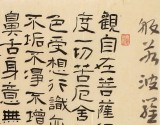 般若波羅
觀自在菩薩
度一切苦厄舍
色受想行識亦
不垢不淨不增
鼻舌身意